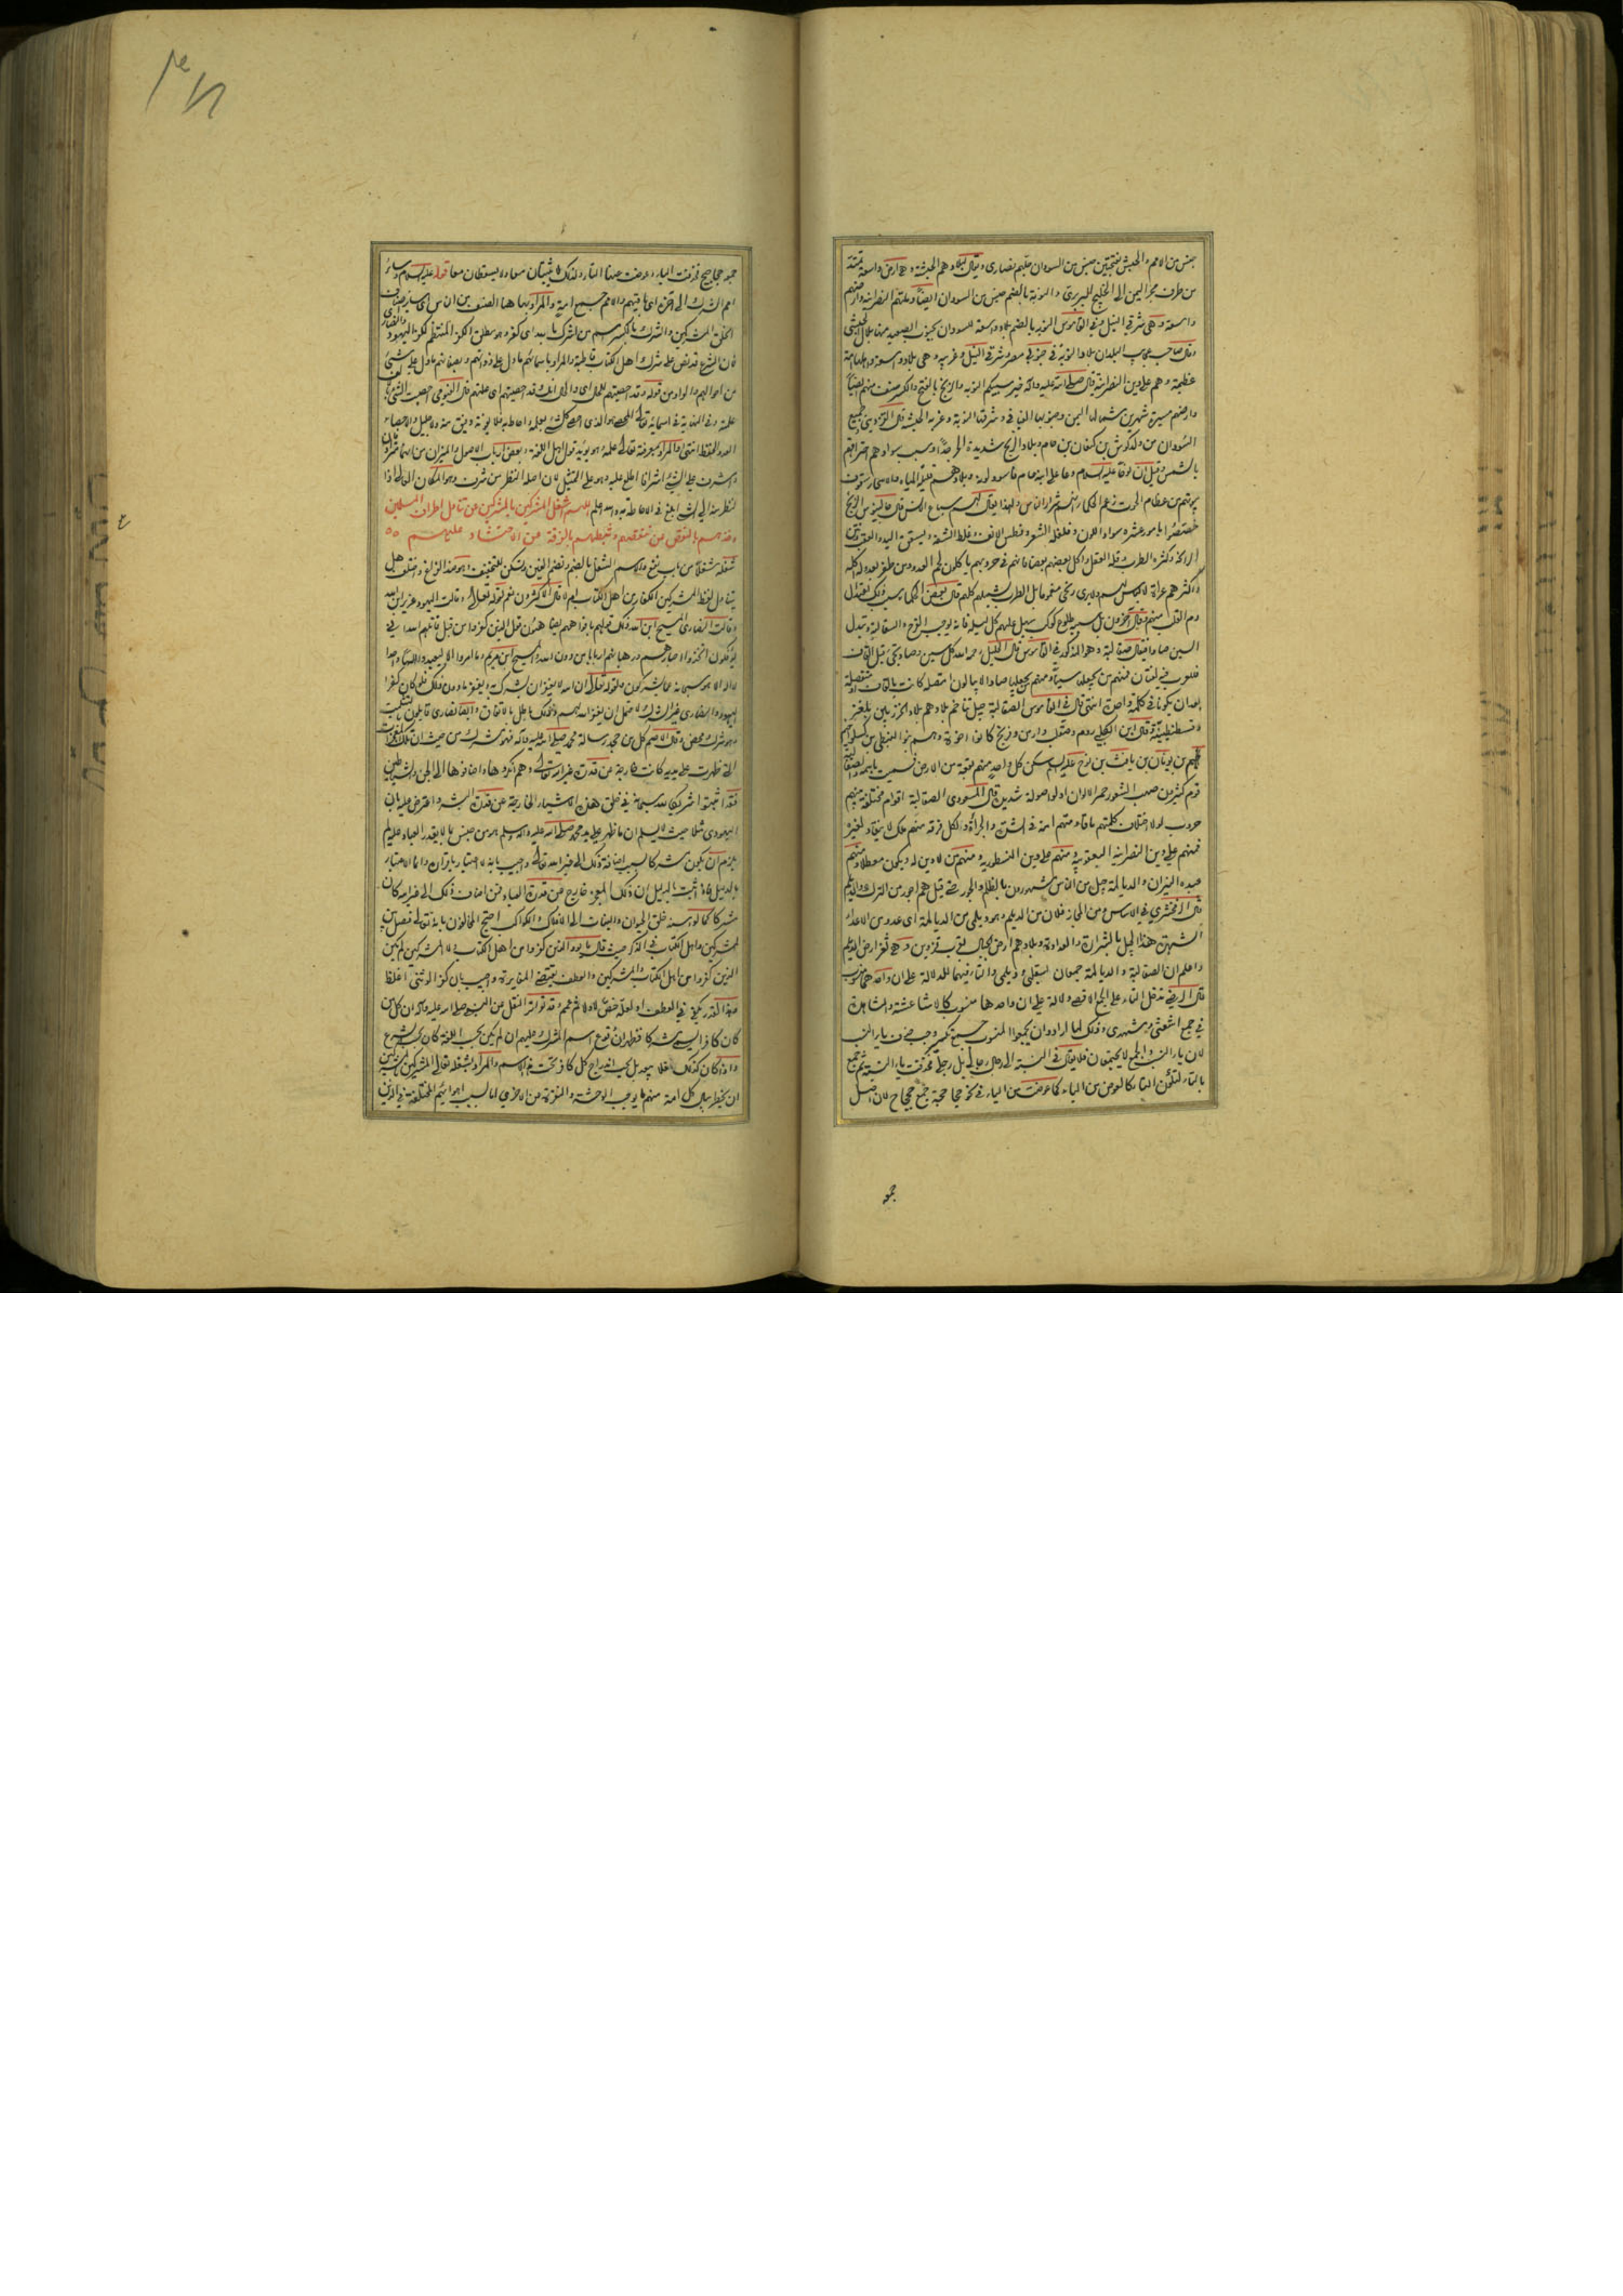 جنس من الامم والحبش بفتحتين جنس من السودان جلهم نصارى ويقال
من طرف بحر اليمن الى الخليج البربرى والنوبة بالضم جنس من السودان ايضا وملتهم النصرانية وارضهم
واسعة وهى شرقى النيل وفى القاموس النوبة بالضم بلاد واسعة للسودان بجنوب الصعيد منها بلال الحبشى
وقال صاحب عجايب البلدان بلاد النوبة فى جنوبى مصر وشرقى النيل وغربيه وهى بلاد واسعة واهلها امة
عظيمة وهم على دين النصرانية قال صلى الله عليه وآله خير سبيكم النوبة والزنج بالفتح والكسر صنف منهم ايضا
وارضهم مسيرة شهرين شمالها اليمن وجنوبها الفيافى وشرقها النوبة وغربها الحبشة قال القزوينى جميع
السودان من ولد كوش بن كنعان بن حام وبلاد الزنج شديدة الحر جدا وسبب سوادهم احتراقهم
بالشمس وقيل ان نوحا عليه السلام دعا على ابنه حام فاسود لونه وبلادهم قليلة المياه والاشجار
زعم الحكماء انهم شرار الناس ولهذا يقال لهم سباع الانس قال جالينوس الزنج
خصصوا بامور عشرة سواد اللون وفلفلة الشعر وفطس الانف وغلظ الشفة وتشقق اليد والعقب ونتن
الرائحة وكثرة الطرب وقلة العقل واكل بعضهم بعضا فانهم فى حروبهم ياكلون لحم العدو ومن ظفر بعدو له اكله
واكثرهم عراة لا لباس لهم ولا يرى زنجى مغموما بل الطرب يشملهم كلهم قال بعض الحكماء سبب ذلك اعتدال
دم القلب منهم وقال آخرون بل سببه طلوع كوكب سهيل عليهم كل ليلة فانه يوجب الفرح والسقالبة وتبدل
السين صادا فيقال صقالبة وهو المذكور فى القاموس قال الخليل رحمه الله كل سين وصاد تجئ قبل القاف
فللعرب فيه لغتان فمنهم من يجعلها سينا ومنهم من يجعلها صادا لا يبالون امتصلة كانت بالقاف او منفصلة
بعد ان يكونا فى كلمة واحدة انتهى قال فى القاموس الصقالبة جيل تتاخم بلادهم بلاد الخزر بين بلغر
وقسطنطينية وقال ابن الكلبى روم وصقلب وارمن وفرنج كانوا اخوة وهم بنو
بن يونان بن يافث بن نوح عليه السلم سكن كل واحد منهم بقعة من الارض فسميت باسمه والصقالبة
قوم كثيرون صهب الشعور حمر الالوان اولو صولة شديدة قال المسعودى الصقالبة اقوام مختلفة بينهم
حروب لولا اختلاف كلمتهم ما قاومتهم امة فى الشدة والجرأة ولكل فرقة منهم ملك لا ينقاد لغيره
فمنهم على دين النصرانية اليعقوبية ومنهم على دين النسطورية ومنهم من لا دين له ويكون معطلا ومنهم
عبدة النيران والديالمة جيل من الناس مشهورون بالظلم والجور حتى قيل هم اجور من الترك والديلم
قال الزمخشرى فى الاساس ومن المجاز فلان من الديلم وهو ديلمى من الديالمة اى عدو من الاعداء
لشهرة هذا الجيل بالشرارة والعداوة وبلادهم ارض الجبال بقرب قزوين
واعلم ان الصقالبة والديالمة جمعان لصقلبى وديلمى والتاء فيهما للدلالة على ان واحدهما منسوب
قال الرضى تدخل التاء على الجمع الاقصى دلالة على ان واحدها منسوب كالاشاعثة والمشاهدة
فى جمع اشعثى ومشهدى وذلك لما ارادوا ان يجمعوا المنسوب جمع تكسير وجب حذف ياء النسب
لان ياء النسب والجمع لا يجتمعان فلا يقال فى النسبة الى رجال رجالى بل رجلى فحذفت ياء النسبة ثم جمع
بالتاء لتكون التاء كالعوض من الياء كما عوضت من الياء فى نحو جحاجحة جمع جحجاح لان اصل
جمعه
جمعه جحاجيح فحذفت الياء وعوضت منها التاء ولذلك لا يثبتان معا ولا يسقطان معا قوله عليه السلام وسائر
امم الشرك الى آخره اى باقيهم والامم جمع امة والمراد بها هنا الصنف من الناس
الخلق المشركين والشرك بالكسر اسم من اشرك بالله اى كفر وهو مطلق الكفر المنتظم لكفر اليهود والنصارى
فان الشرع قد نص على شرك اهل الكتاب قاطبة والمراد باسمائهم ما دل على ذواتهم وبصفاتهم ما دل على شئ
من احوالهم والواو من قوله وقد احصيتهم للحال اى والحال انك قد احصيتهم اى علمتهم قال الفيومى احصيت الشئ
علمته وفى النهاية فى اسمائه تعالى المحصى هو الذى احصى كل شئ بعلمه واحاط به فلا يفوته دقيق منه ولا جليل والاحصاء
العد والحفظ انتهى والمراد بمعرفته تعالى علمه
واشرفت على الشئ اشرافا اطلعت عليه وهو على التمثيل لان اصله النظر من شرف وهو المكان العالى اذا
نظر منه الى الشئ ابلغ فى الاحاطة به والله اعلم اللهم اشغل المشركين بالمشركين عن تناول اطراف المسلمين
وخذهم بالنقص عن تنقصهم وثبطهم بالفرقة عن الاحتشاد عليهم
شغله شغلا من باب نفع والاسم الشغل بالضم وتضم الغين وتسكن للتخفيف واختلف هل
يتناول لفظ المشركين الكفار من اهل الكتاب ام لا قال الاكثرون نعم لقوله تعالى وقالت اليهود عزير ابن الله
وقالت النصارى المسيح ابن الله ذلك قولهم بافواههم يضاهئون قول الذين كفروا من قبل قاتلهم الله انى
يؤفكون اتخذوا احبارهم ورهبانهم اربابا من دون الله والمسيح ابن مريم وما امروا الا ليعبدوا الها واحدا
لا اله الا هو سبحانه عما يشركون ولقوله تعالى ان الله لا يغفر ان يشرك به ويغفر ما دون ذلك فلو كان كفر
اليهود والنصارى غير الشرك لاحتمل ان يغفر الله لهم وذلك باطل بالاتفاق وايضا النصارى قايلون بالتثليث
وهو شرك محض وقال الاصم كل من جحد رسالة محمد صلى الله عليه وآله فهو مشرك من حيث ان تلك المعجزات
التى ظهرت على يده كانت خارجة عن قدرة غير الله تعالى وهم انكروها واضافوها الى الجن والشياطين
فقد اثبتوا شريكا لله سبحانه فى خلق هذه الاشياء الخارجة عن قدرة البشر واعترض عليه بان
اليهودى مثلا حيث لا يسلم ان ما ظهر على يد محمد صلى الله عليه وآله وسلم هو من جنس ما لا يقدر العباد عليه لم
يلزم ان يكون مشركا بسبب اضافة ذلك الى غير الله تعالى واجيب بانه لا اعتبار باقراره وانما الاعتبار
بالدليل فاذا ثبت بالدليل ان ذلك المعجز خارج عن قدرة العباد فمن اضاف ذلك الى غيره كان
مشركا كما لو اسند خلق الحيوان والنبات الى الافلاك والكواكب احتج المخالفون بانه تعالى فصل بين
المشركين واهل الكتاب فى الذكر حيث قال ما يود الذين كفروا من اهل الكتاب ولا المشركين لم يكن
الذين كفروا من اهل الكتاب والمشركين والعطف يقتضى المغايرة واجيب بان كفر الوثنى اغلظ
وهذا القدر يكفى فى العطف
كان كافرا يسمى مشركا
واذا كان كذلك فلا بعد بل يجب اندراج كل كافر تحت هذا الاسم والمراد بشغله تعالى المشركين بالمشركين
ان يخطر ببال كل امة منهم ما يوجب الوحشة والنفرة من الاخرى اما بسبب اهوائهم المختلفة فى الدين